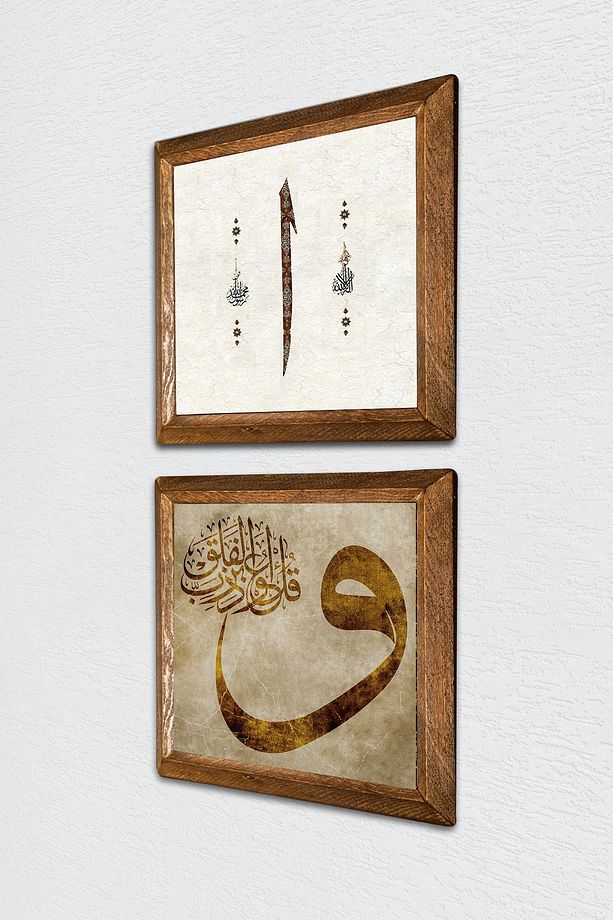 ا
محمد رسول الله
و
قل أعوذ برب الفلق